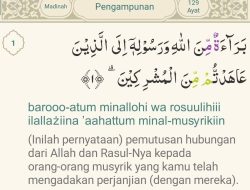 Madinah
Pengampunan
129
Ayat
1
بَرَآءَةٌ مِّنَ اللّٰهِ وَرَسُوْلِهٖٓ اِلَى الَّذِيْنَ
عَاهَدْتُّمْ مِّنَ الْمُشْرِكِيْنَۗ ﴿١﴾
barooo-atum minallohi wa rosuulihiii
ilallażiina 'aahattum minal-musyrikiin
(Inilah pernyataan) pemutusan hubungan
dari Allah dan Rasul-Nya kepada
orang-orang musyrik yang kamu telah
mengadakan perjanjian (dengan mereka).